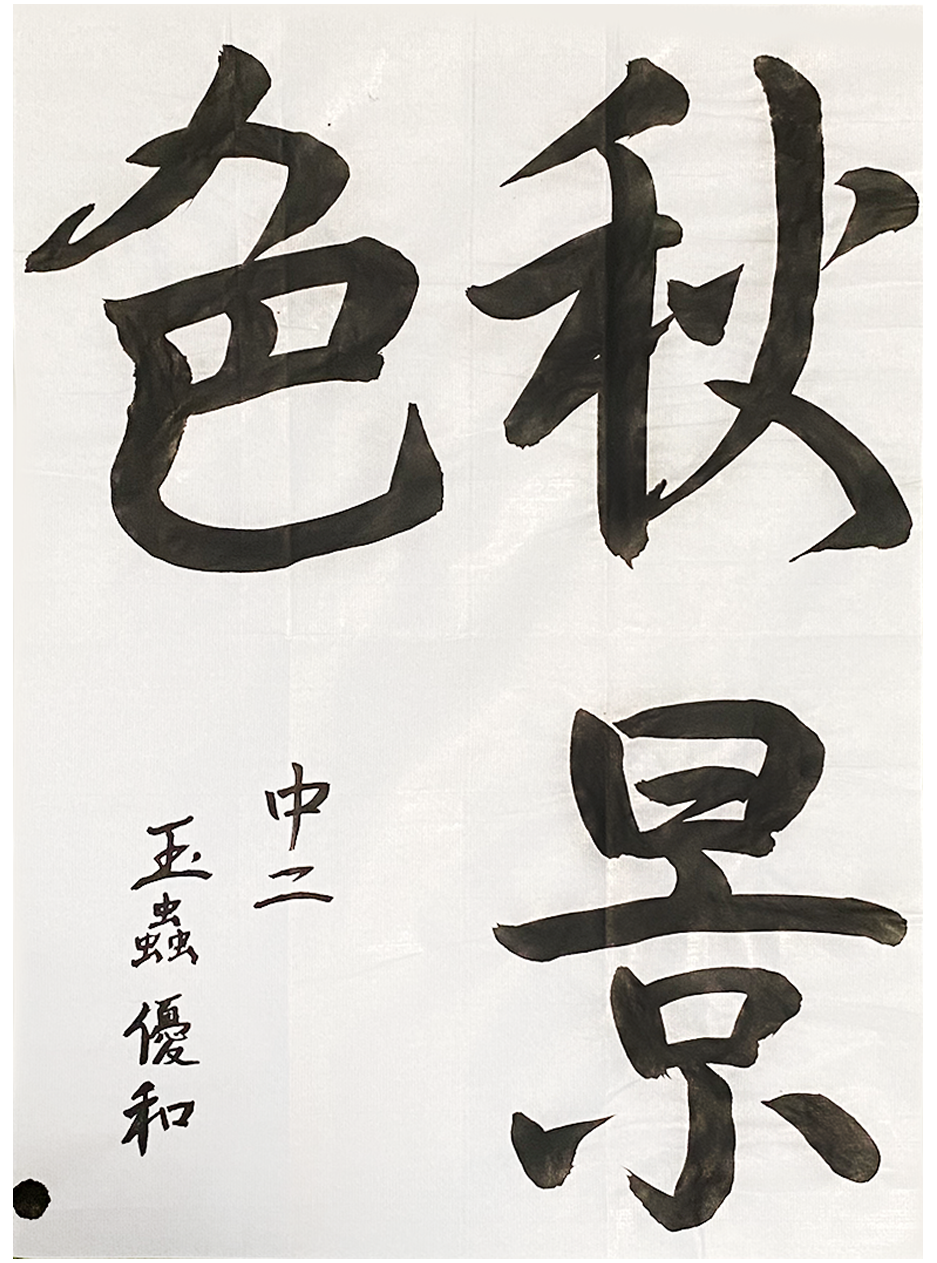 秋景
色
中二
玉蟲優和